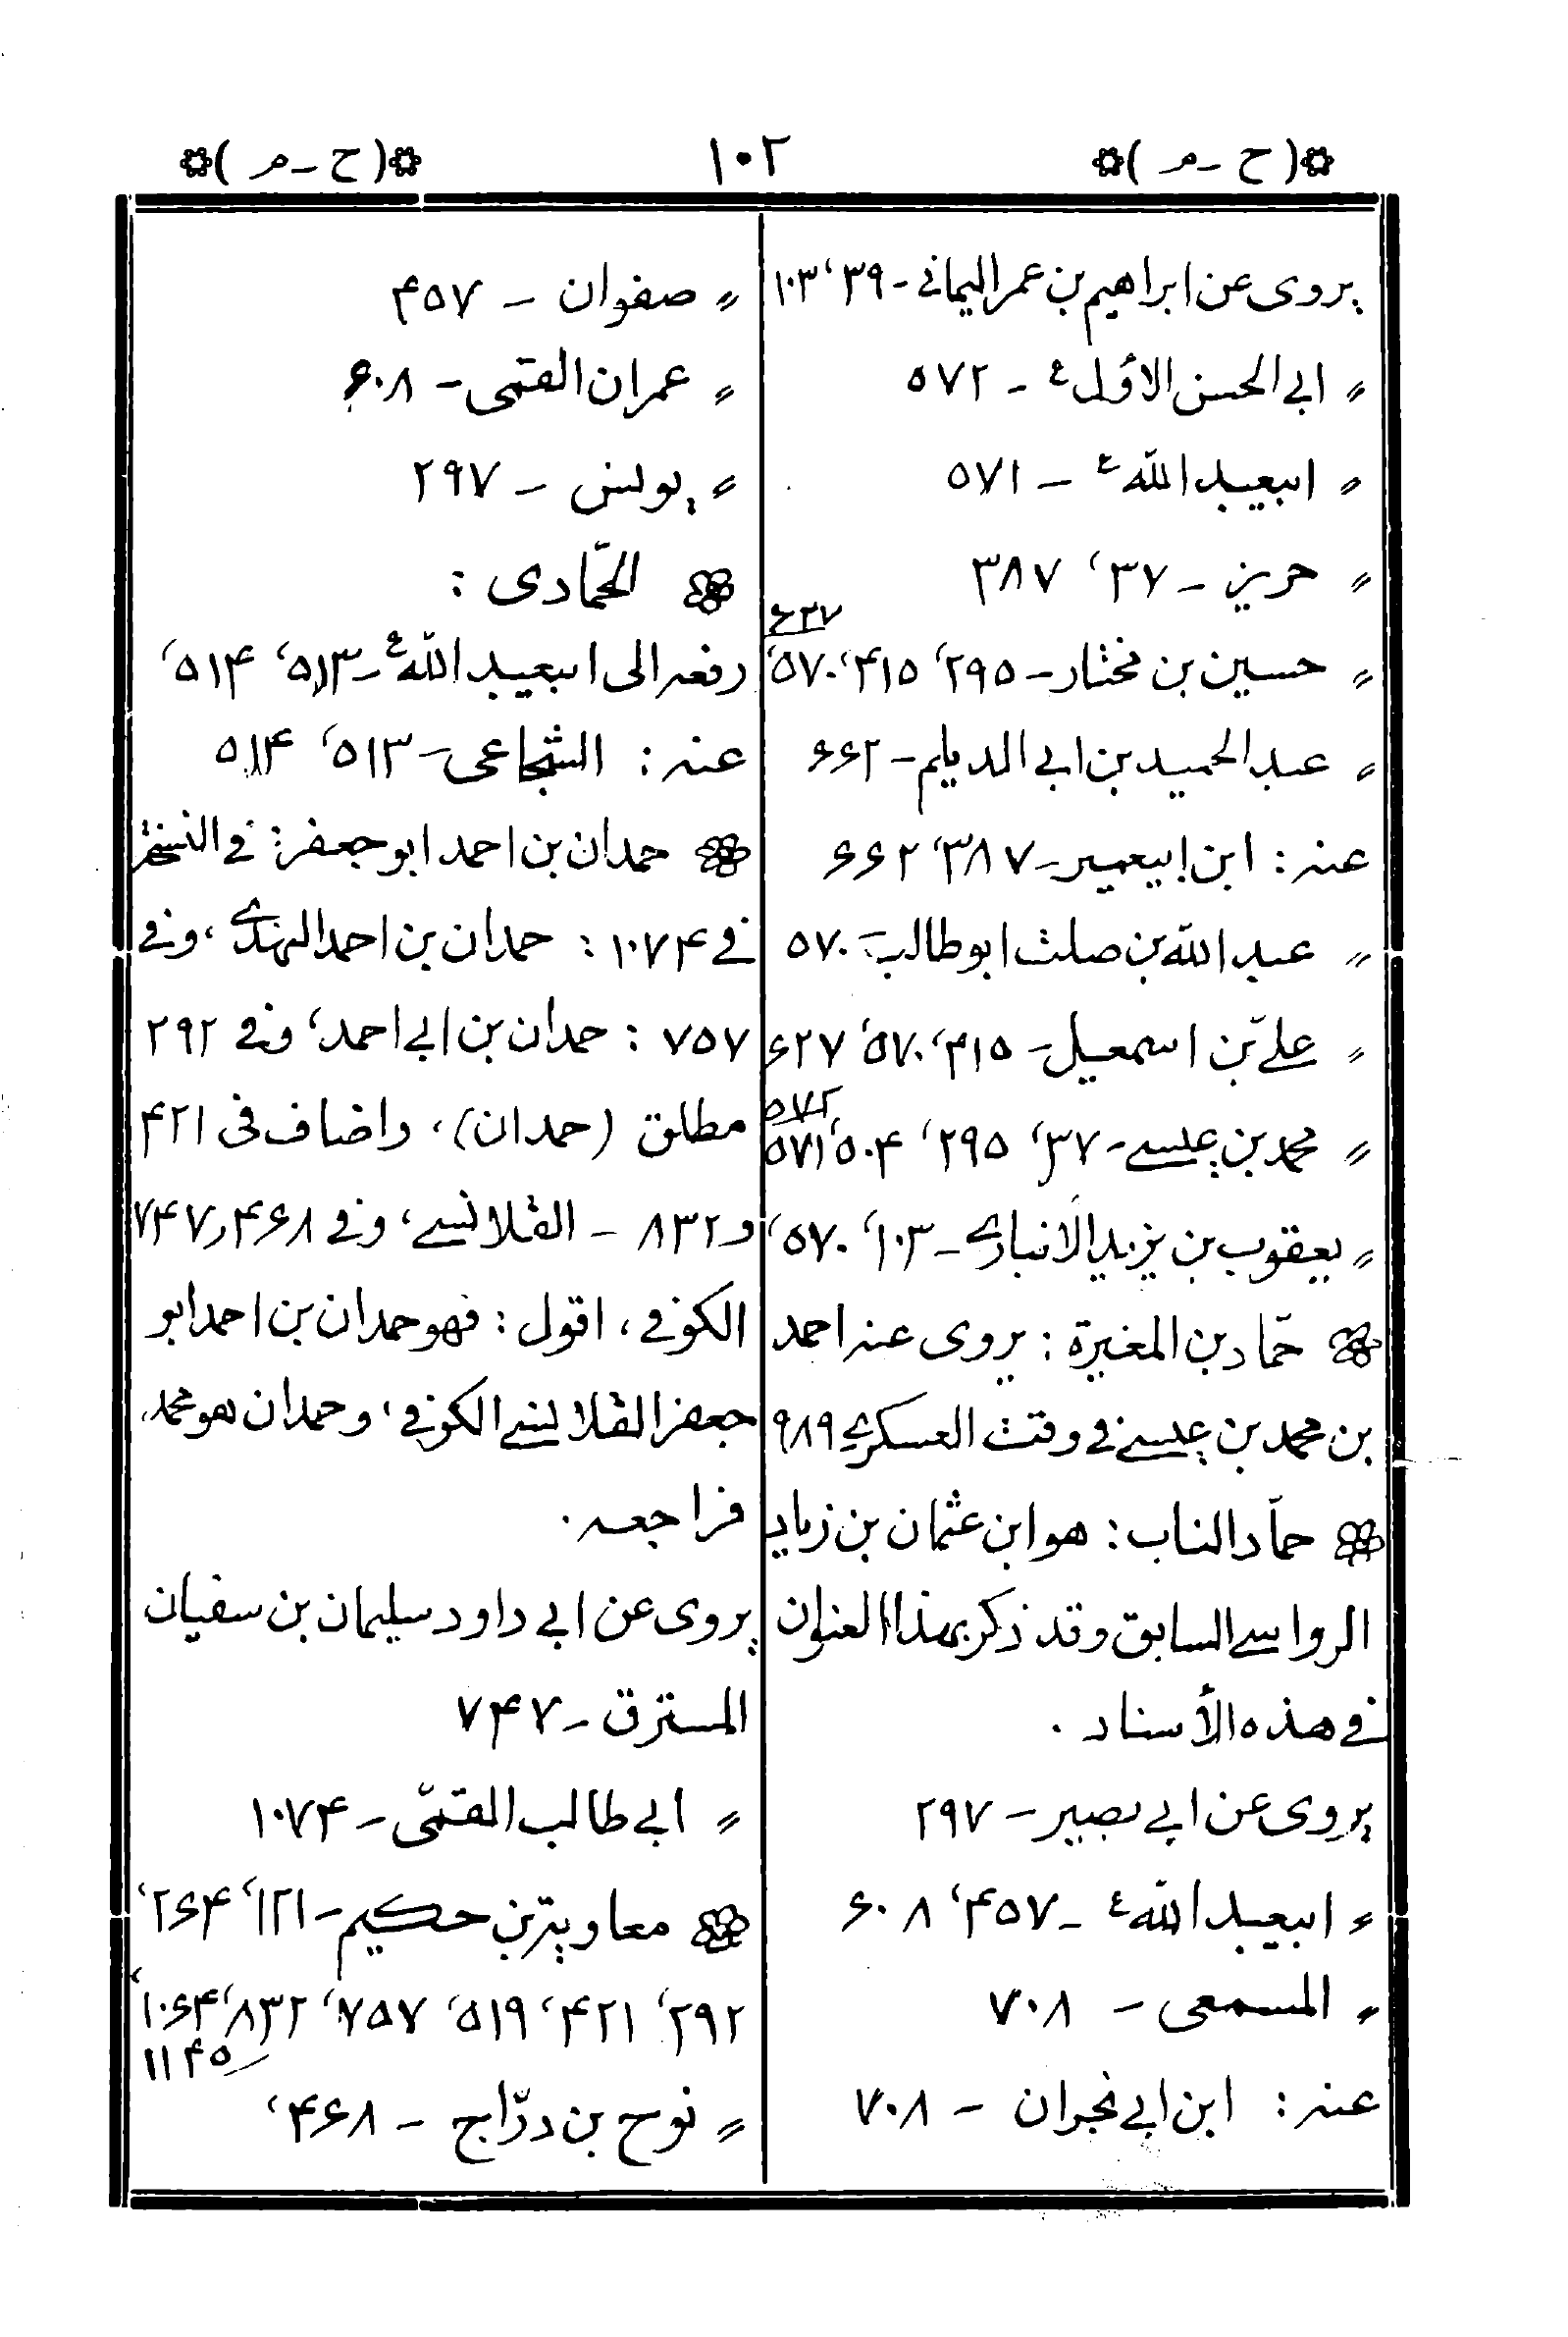 ❁( ح ـ م )❁ ١٠٢ ❁( ح ـ م )❁
يروى عن ابراهيم بن عمر اليمانى - ٣٩، ١٠٣
〃 ابي الحسن الاوّل ع - ٥٧٢
〃 ابيعبد اللّه ع - ٥٧١
〃 حريز - ٣٧، ٣٨٧
۶٣٧
〃 حسين بن مختار - ٢٩٥، ۴١٥، ٥٧٠،
〃 عبد الحميد بن ابي الديلم - ۶۶٢
عنه : ابن ابيعمير - ٣٨٧، ۶۶٢
〃 عبد اللّه بن صلت ابو طالب - ٥٧٠
〃 علي بن اسمعيل - ۴١٥، ٥٧٠، ۶٢٧
٥٧٢
〃 محمد بن عيسى - ٣٧، ٢٩٥، ٥٠۴، ٥٧١
〃 يعقوب بن يزيد الانباري - ١٠٣، ٥٧٠،
❁ حمّاد بن المغيرة : يروى عنه احمد
بن محمد بن عيسى في وقت العسكري ٩٨٩
❁ حمّاد الناب : هو ابن عثمان بن زياد
الرواسي السابق وقد ذكر بهذا العنوان
في هذه الأسناد .
يروى عن ابي بصير - ٢٩٧
〃 ابيعبد اللّه ع - ۴٥٧، ۶٠٨
〃 المسمعى - ٧٠٨
عنه : ابن ابي نجران - ٧٠٨
〃 صفوان - ۴٥٧
〃 عمران القمى - ۶٠٨
〃 يونس - ٢٩٧
❁ الحمّادى :
رفعه الى ابيعبد اللّه ع - ٥١٣، ٥١۴،
عنه : الشجاعى - ٥١٣، ٥١۴
❁ حمدان بن احمد ابو جعفر : في النسخة
في ١٠٧۴ : حمدان بن احمد النهدي، وفي
٧٥٧ : حمدان بن ابي احمد، وفي ٢٩٢
مطلق (حمدان)، واضاف فى ۴٢١
و ٨٣٢ - القلانسي، وفي ۴۶٨ و ٧۴٧
الكوفي، اقول : فهو حمدان بن احمد ابو
جعفر القلانسي الكوفي، وحمدان هو محمد،
فراجعه .
يروى عن ابي داود سليمان بن سفيان
المسترق - ٧۴٧
〃 ابي طالب القمّى - ١٠٧۴
❁ معاوية بن حكيم - ١٢١، ٢۶۴،
٢٩٢، ۴٢١، ٥١٩، ٧٥٧، ٨٣٢، ١٠۶۴،
١١۴٥
〃 نوح بن درّاج - ۴۶٨،